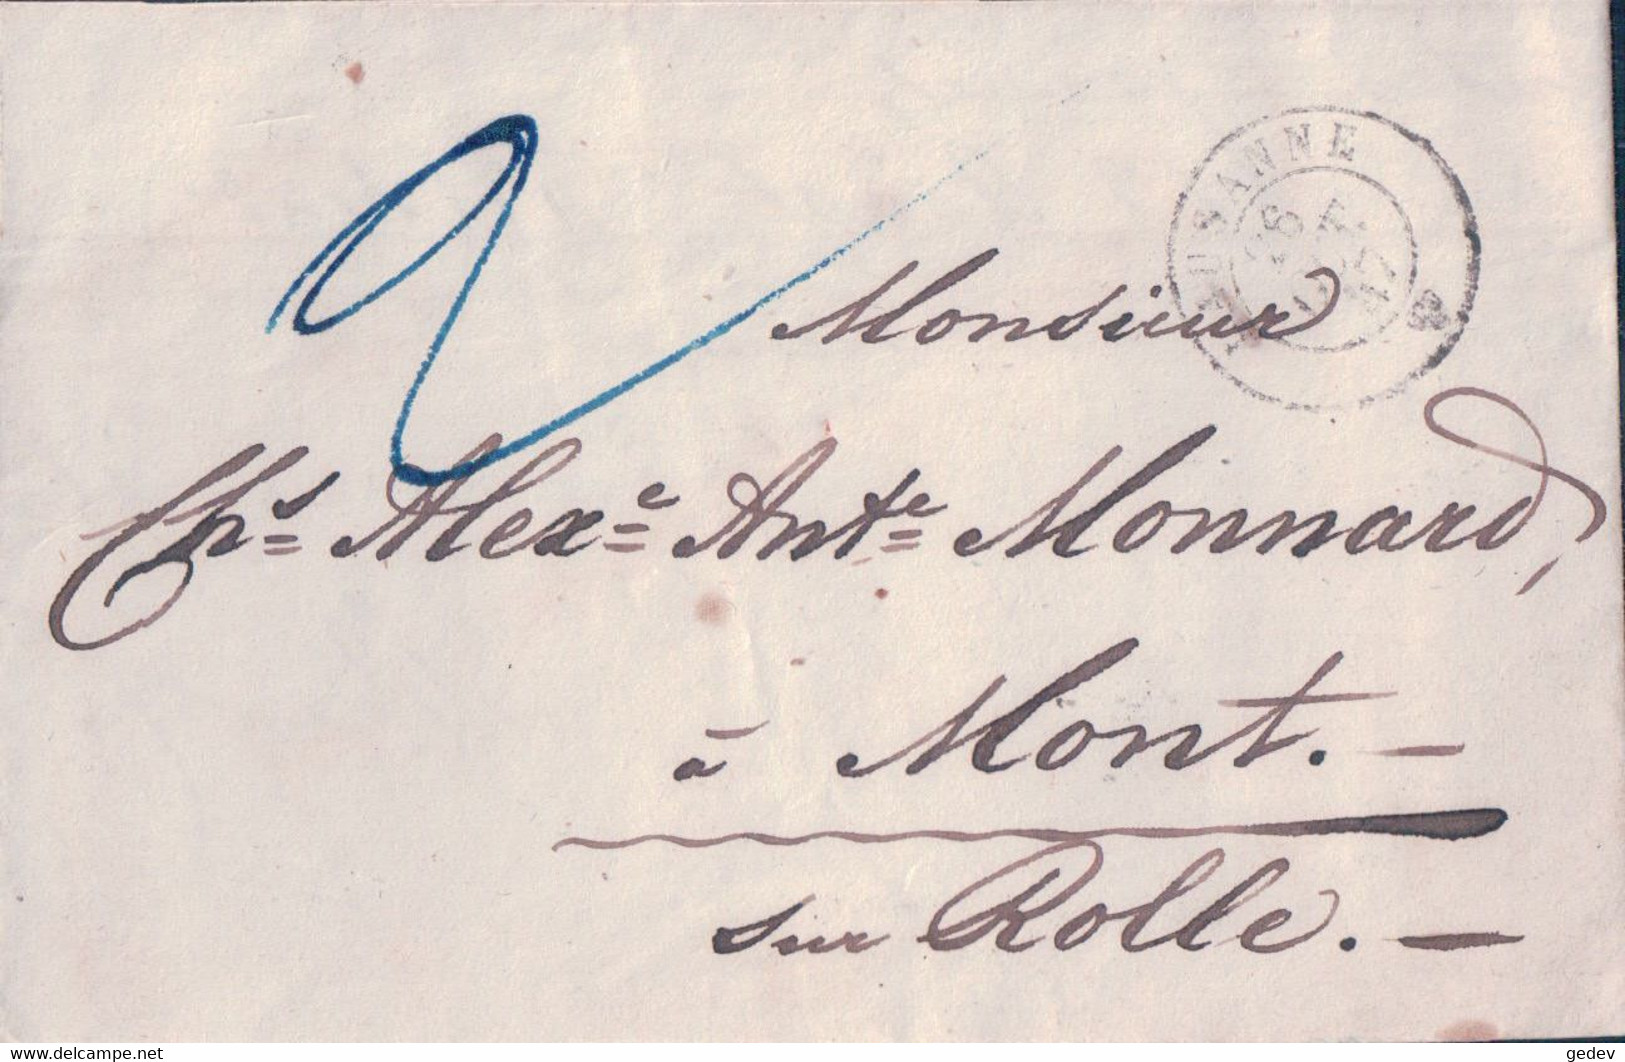 2
LAUSANNE
Monsieur
Chs. Alexe. Ante. Monnard,
à Mont. —
sur Rolle. —
www.delcampe.net
gedev